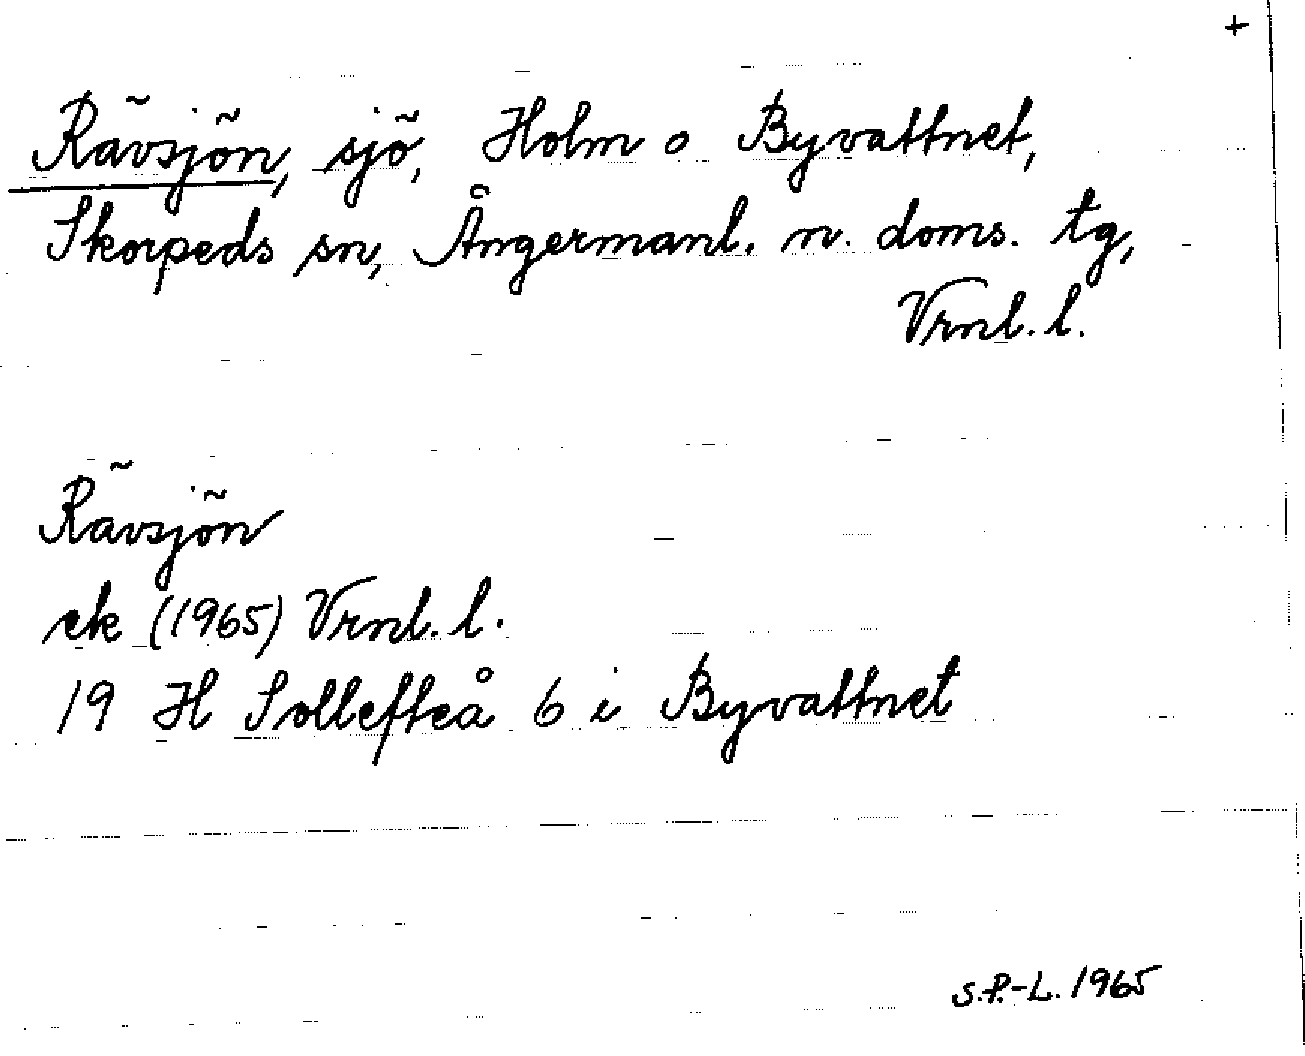 +
Rävsjön, sjö, Holm o Byvattnet,
Skorpeds sn, Ångermanl. n. doms. tg,
Vrnl. l.
Rävsjön
ek (1965) Vrnl. l.
19 H Sollefteå 6 i Byvattnet
S.P.-L. 1965